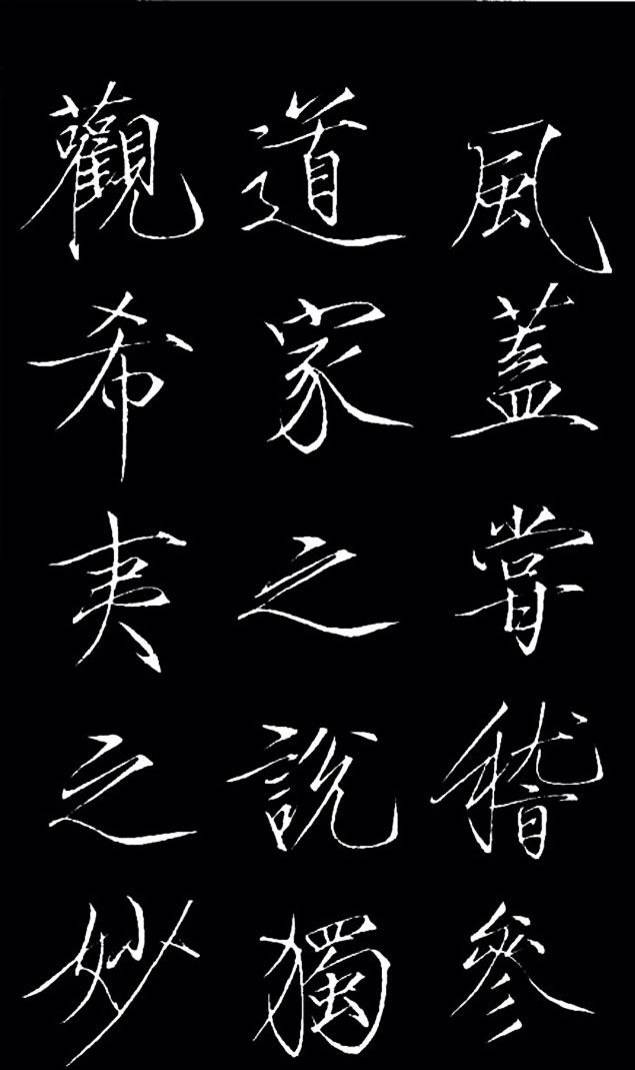 風蓋嘗稽參
道家之說獨
觀希夷之妙